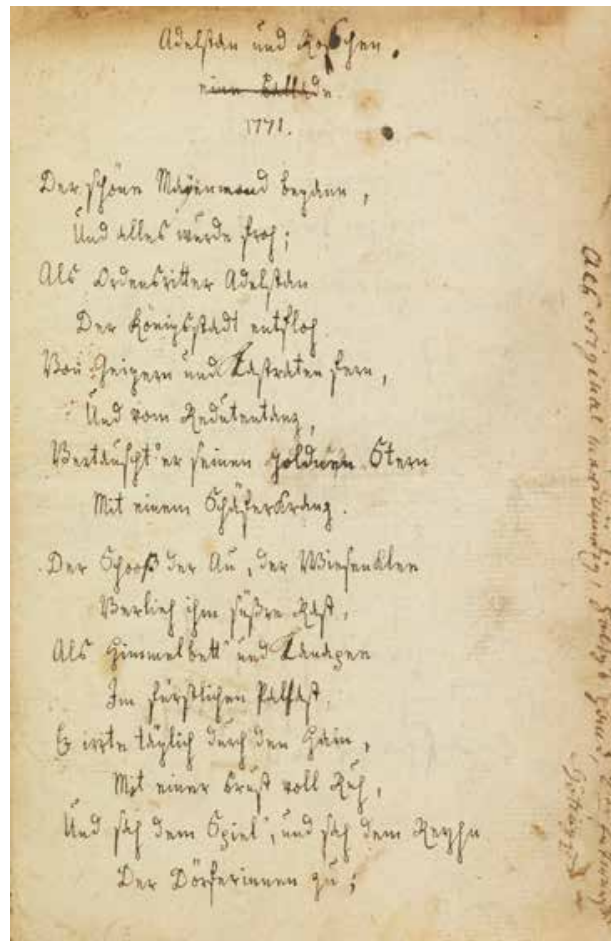 Adelstan und Röschen.
eine Ballade.
1771.
Der schöne Mayenmond begann,
Und alles wurde froh;
Als Ordensritter Adelstan
Der Königsstadt entfloh.
Von Geigern und Kastraten fern,
Und vom Redutentanz,
Vertauscht' er seinen goldnen Stern
Mit einem Schäferkranz.
Der Schooß der Au, der Wiesenklee
Verlieh ihm süßre Rast,
Als Himmelbett und Kanapee
Im fürstlichen Pallast.
Er irrte täglich durch den Hain,
Mit einer Brust voll Ruh,
Und sah dem Spiel, und sah dem Reyhn
Der Dörferinnen zu;
Als original merkwürdig,